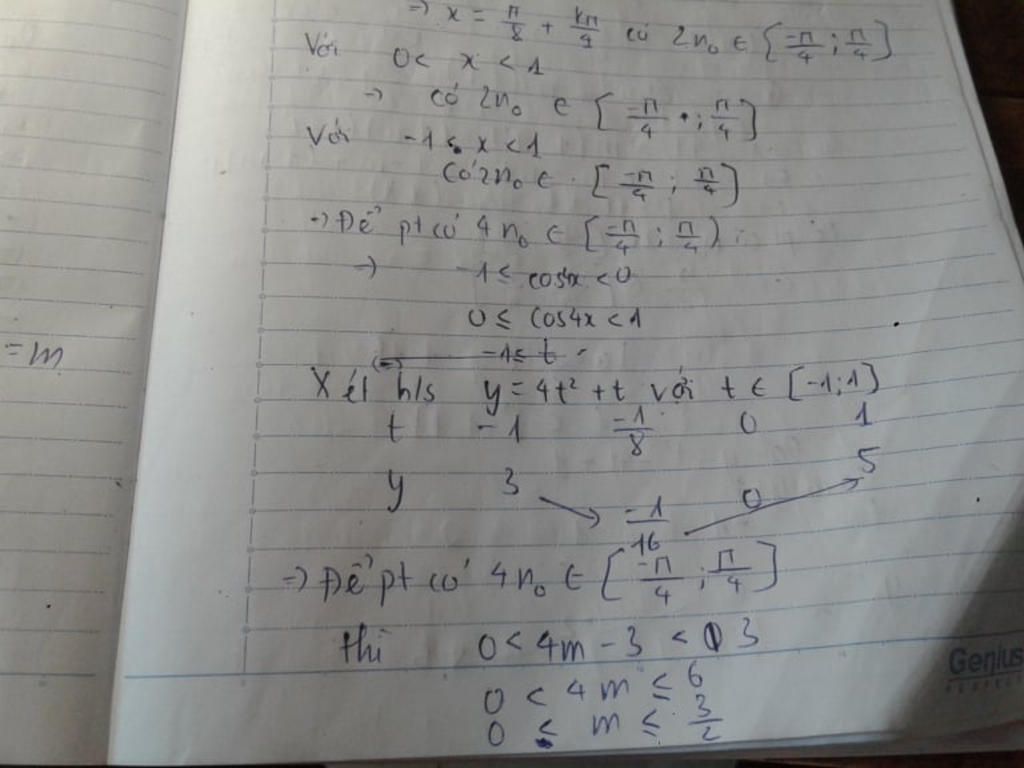 => x = π/8 + kπ/4 có 2n₀ ∈ [-π/4 ; π/4]
Với 0 < x < 1
-> có 2n₀ ∈ [-π/4 ; π/4]
Với -1 ≤ x < 1
Có 2n₀ ∈ [-π/4 ; π/4]
-> Để pt có 4n₀ ∈ [-π/4 ; π/4)
=> -1 ≤ cos4x < 0
0 ≤ cos4x < 1
= m
-1 ≤ t
Xét h/s y = 4t² + t với t ∈ [-1;1]
t -1 -1/8 0 1
y 3 -1/16 0 5
=> Để pt có 4n₀ ∈ [-π/4 ; π/4]
thì 0 < 4m - 3 < 3
0 < 4m ≤ 6
0 ≤ m ≤ 3/2
Genius